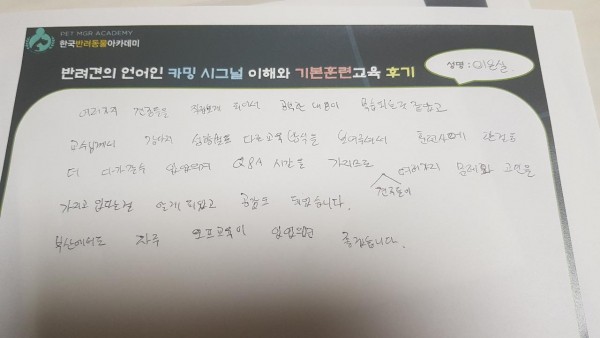 PET MGR ACADEMY
한국반려동물아카데미
반려견의 언어인 카밍 시그널 이해와 기본훈련교육 후기
성명 : 이은실
여러가지 견종들을 직접보게 되어서 공부한 내용이 복습되는거 같았고
교수님께서 강아지 성향별로 다른교육방식을 보여주셔서 훈련사에 관점을
더 다가갈수 있었으며 Q&A 시간을 가지므로 여러가지 문제와 고민을
견주들이
가지고 있다는걸 알게 되었고 공감도 되었습니다.
부산에서도 자주 오프교육이 있었으면 좋겠습니다.